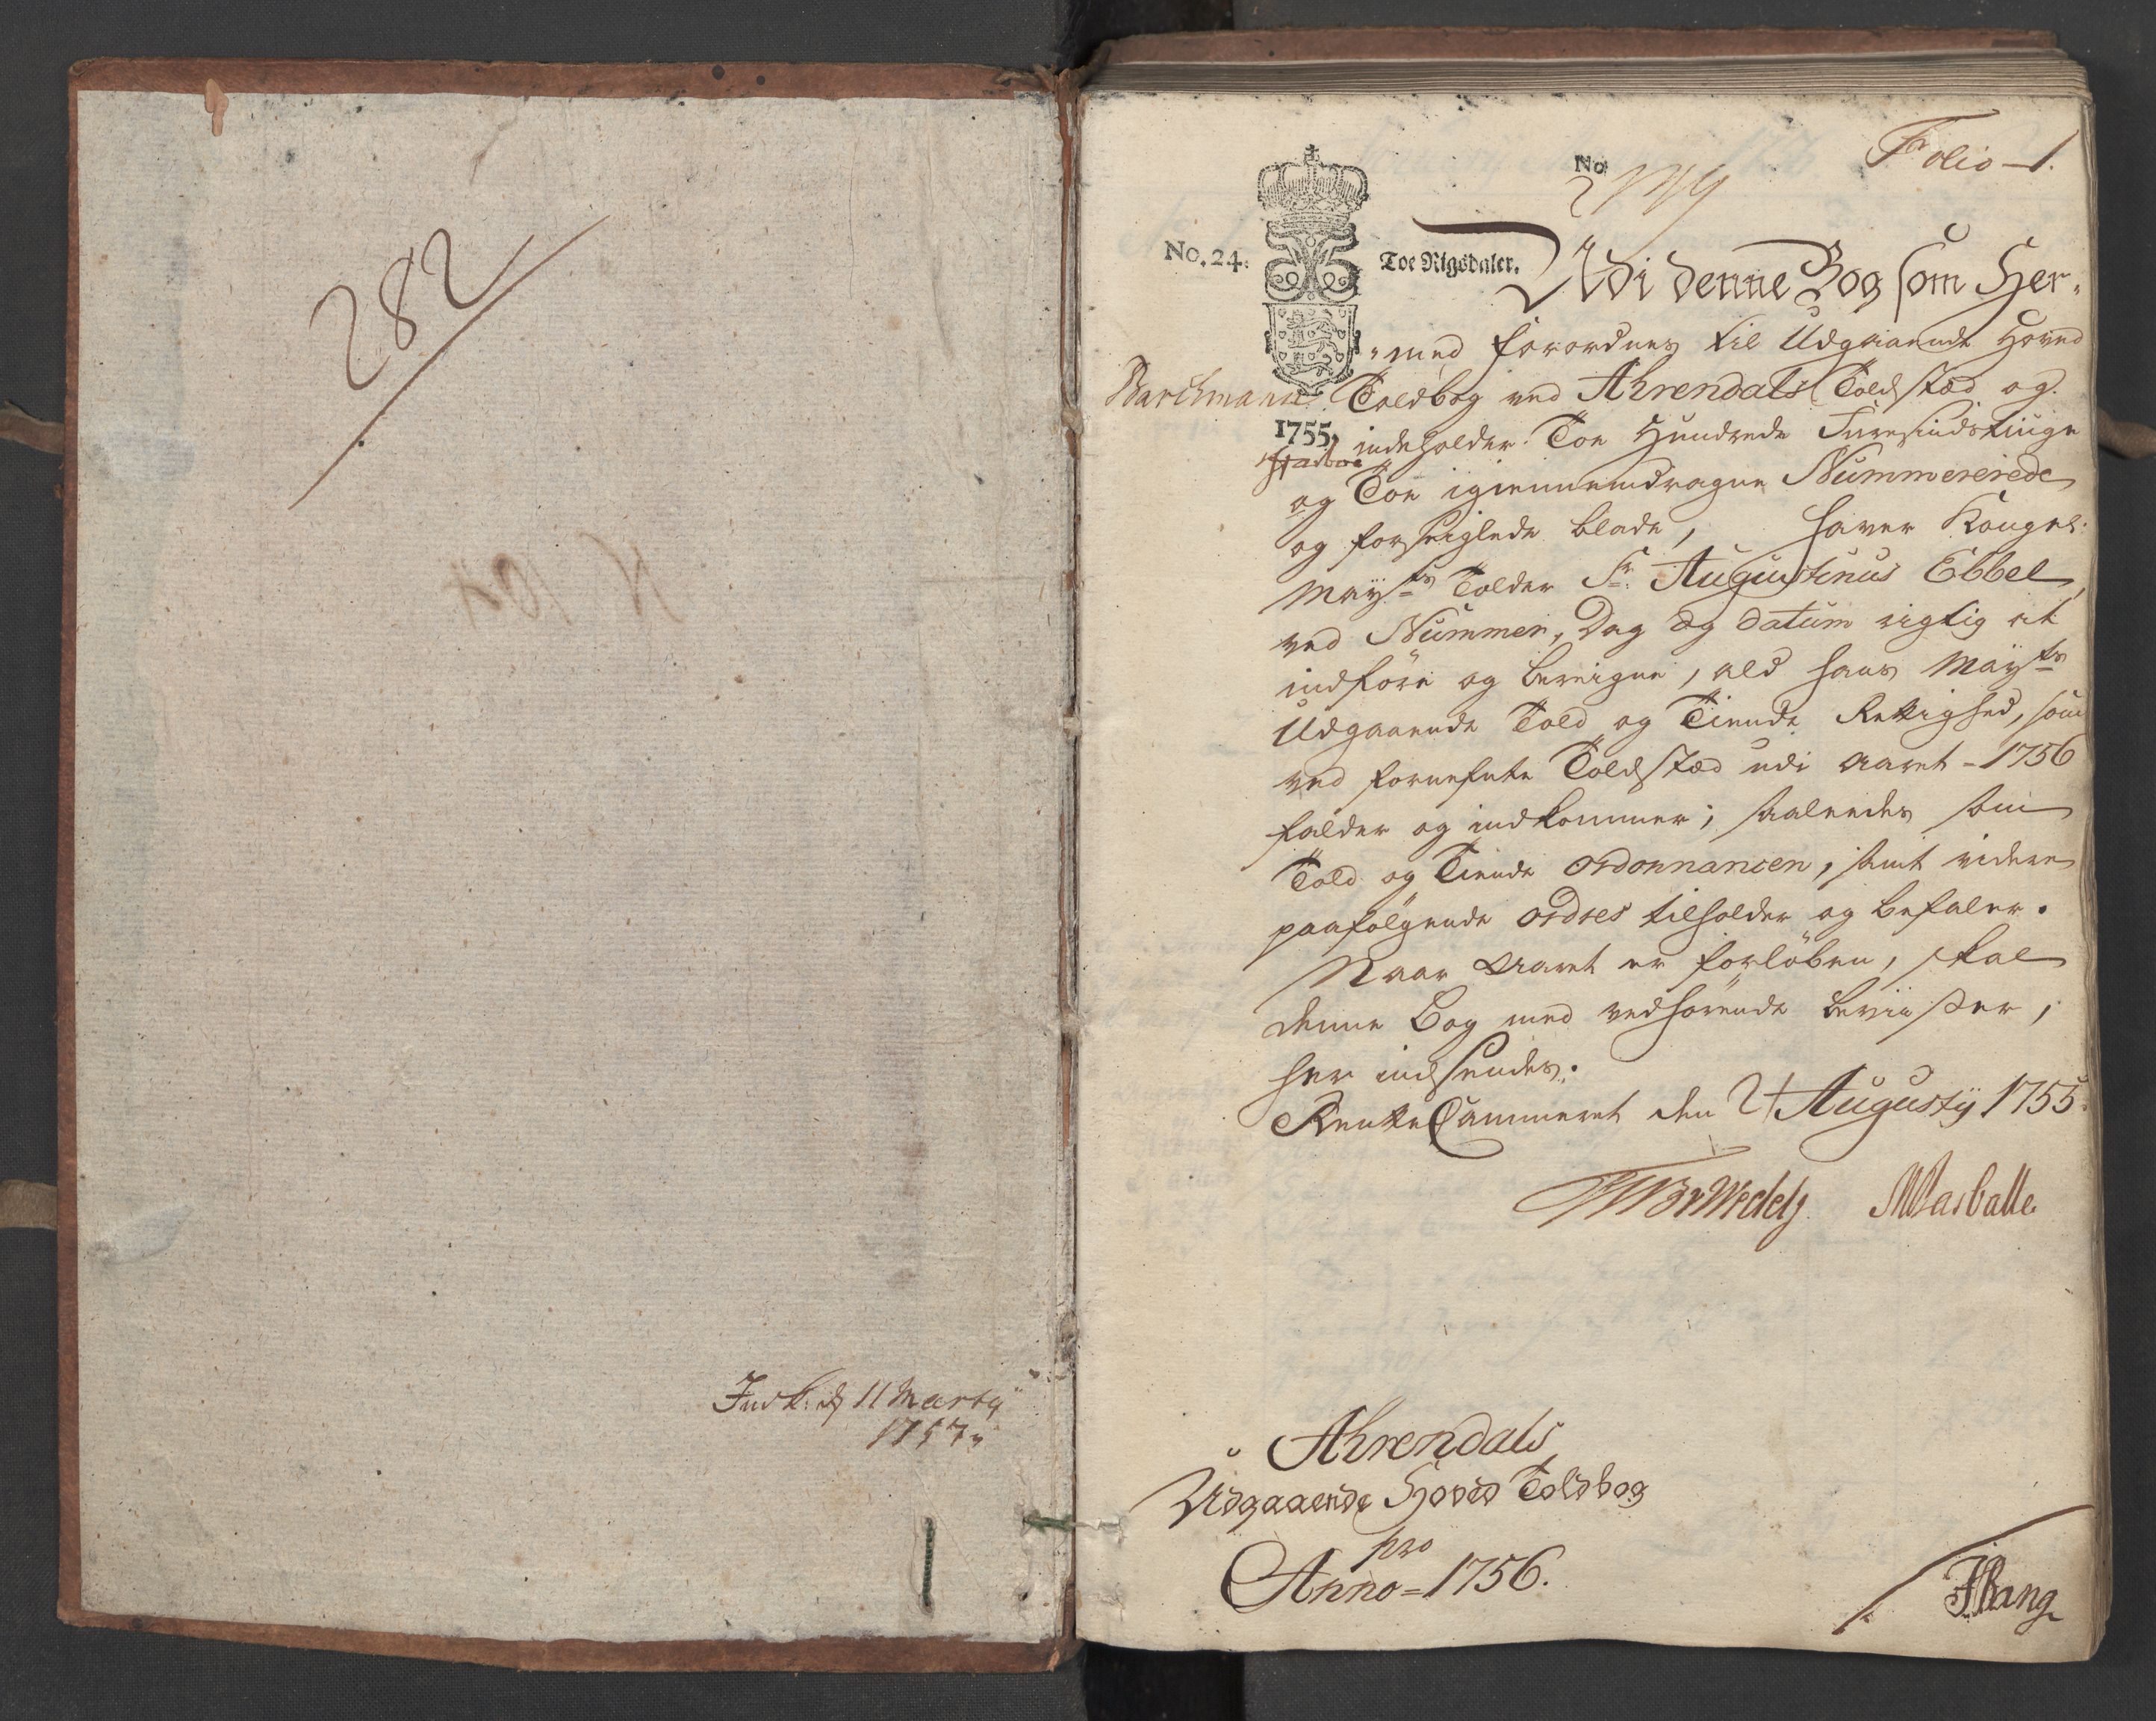 282
N 104
Indk: d 11 Marty
1757,
Folio 1.
No
No. 24.
Toe Rigsdaler.
Udi denne Bog som Her-
-med forordnes til Udgaaende Hoved
Barchmann
Toldbog ved Ahrendals Toldsted og
1755.
indeholder Toe Hundrede Tiresindstiuge
og Toe igiennemdragne Nummererede
og forseiglede blade, haver Kongel:
Mayts Tolder Sr. Augustinus Ebbel,
ved Nummer, Dag og datum rigtig at
indföre og bereigne, ald hans Mayts
Udgaaende Told og Tiende Rettighed, som
ved fornefnte Toldsted udi Aaret - 1756
falder og indkommer; saaleedes som
Told og Tiende Ordonnancen, samt videre
paafölgende Ordres tilholder og befaler.
Naar Aaret er forlöben, skal
denne Bog med vedhörende beviister,
her indsendes.
RenteCammeret den 2t Augustÿ 1755.
Ahrendals
Udgaaende Hoved Toldbog
pro
Anno = 1756.
JBang